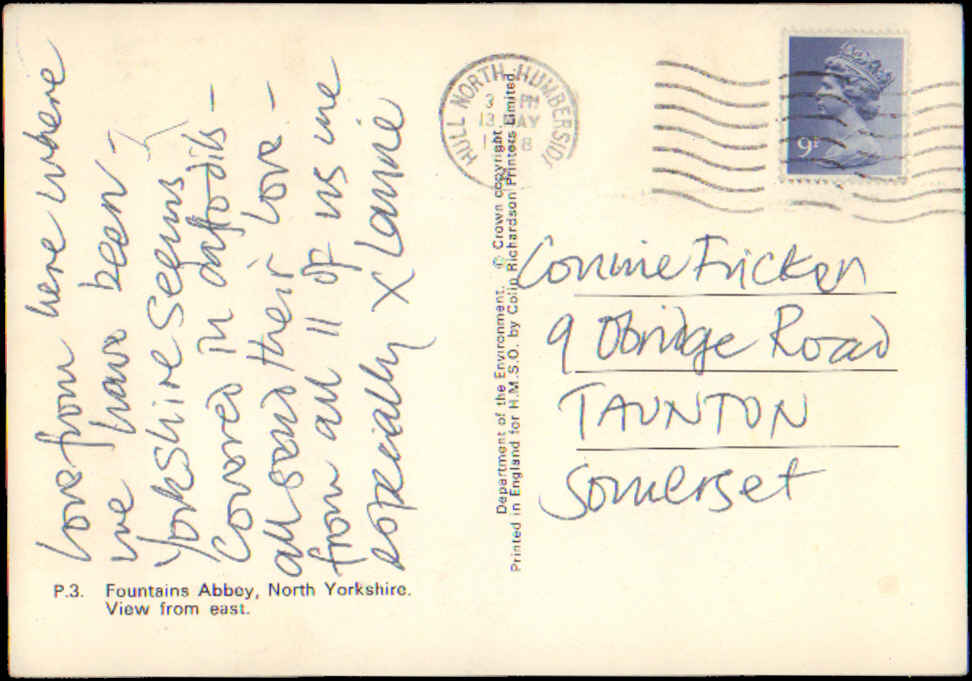 Love from here where
we have been –
Yorkshire seems
Covered in daffodils –
all send their love –
from all 11 of us me
especially X Lannie
P.3. Fountains Abbey, North Yorkshire.
View from east.
Department of the Environment. © Crown copyright
Printed in England for H.M.S.O. by Colin Richardson Printers Limited.
HULL NORTH HUMBERSIDE
3 PM
13 MAY
9P
Connie Fricker
9 Obridge Road
TAUNTON
Somerset